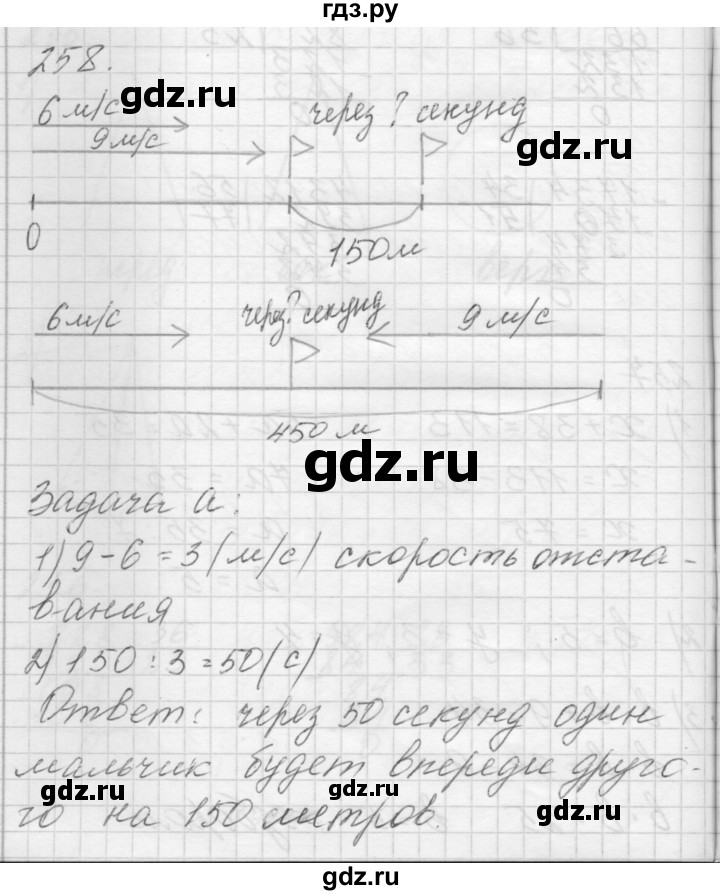 гдз.ру
258.
6 м/с
gdz.ru
через ? секунд
9 м/с
gdz.ru
0
150 м
6 м/с
через ? секунд
9 м/с
450 м
gdz.ru
Задача а:
1) 9 - 6 = 3 (м/с) скорость отста-
вания
2) 150 : 3 = 50 (с)
Ответ: через 50 секунд один
мальчик будет впереди друго-
gdz.ru
gdz.ru
го на 150 метров.